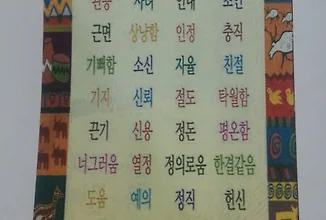 근면 상냥함 인정 충직
기뻐함 소신 자율 친절
기지 신뢰 절도 탁월함
끈기 신용 정돈 평온함
너그러움 열정 정의로움 한결같음
도움 예의 정직 헌신